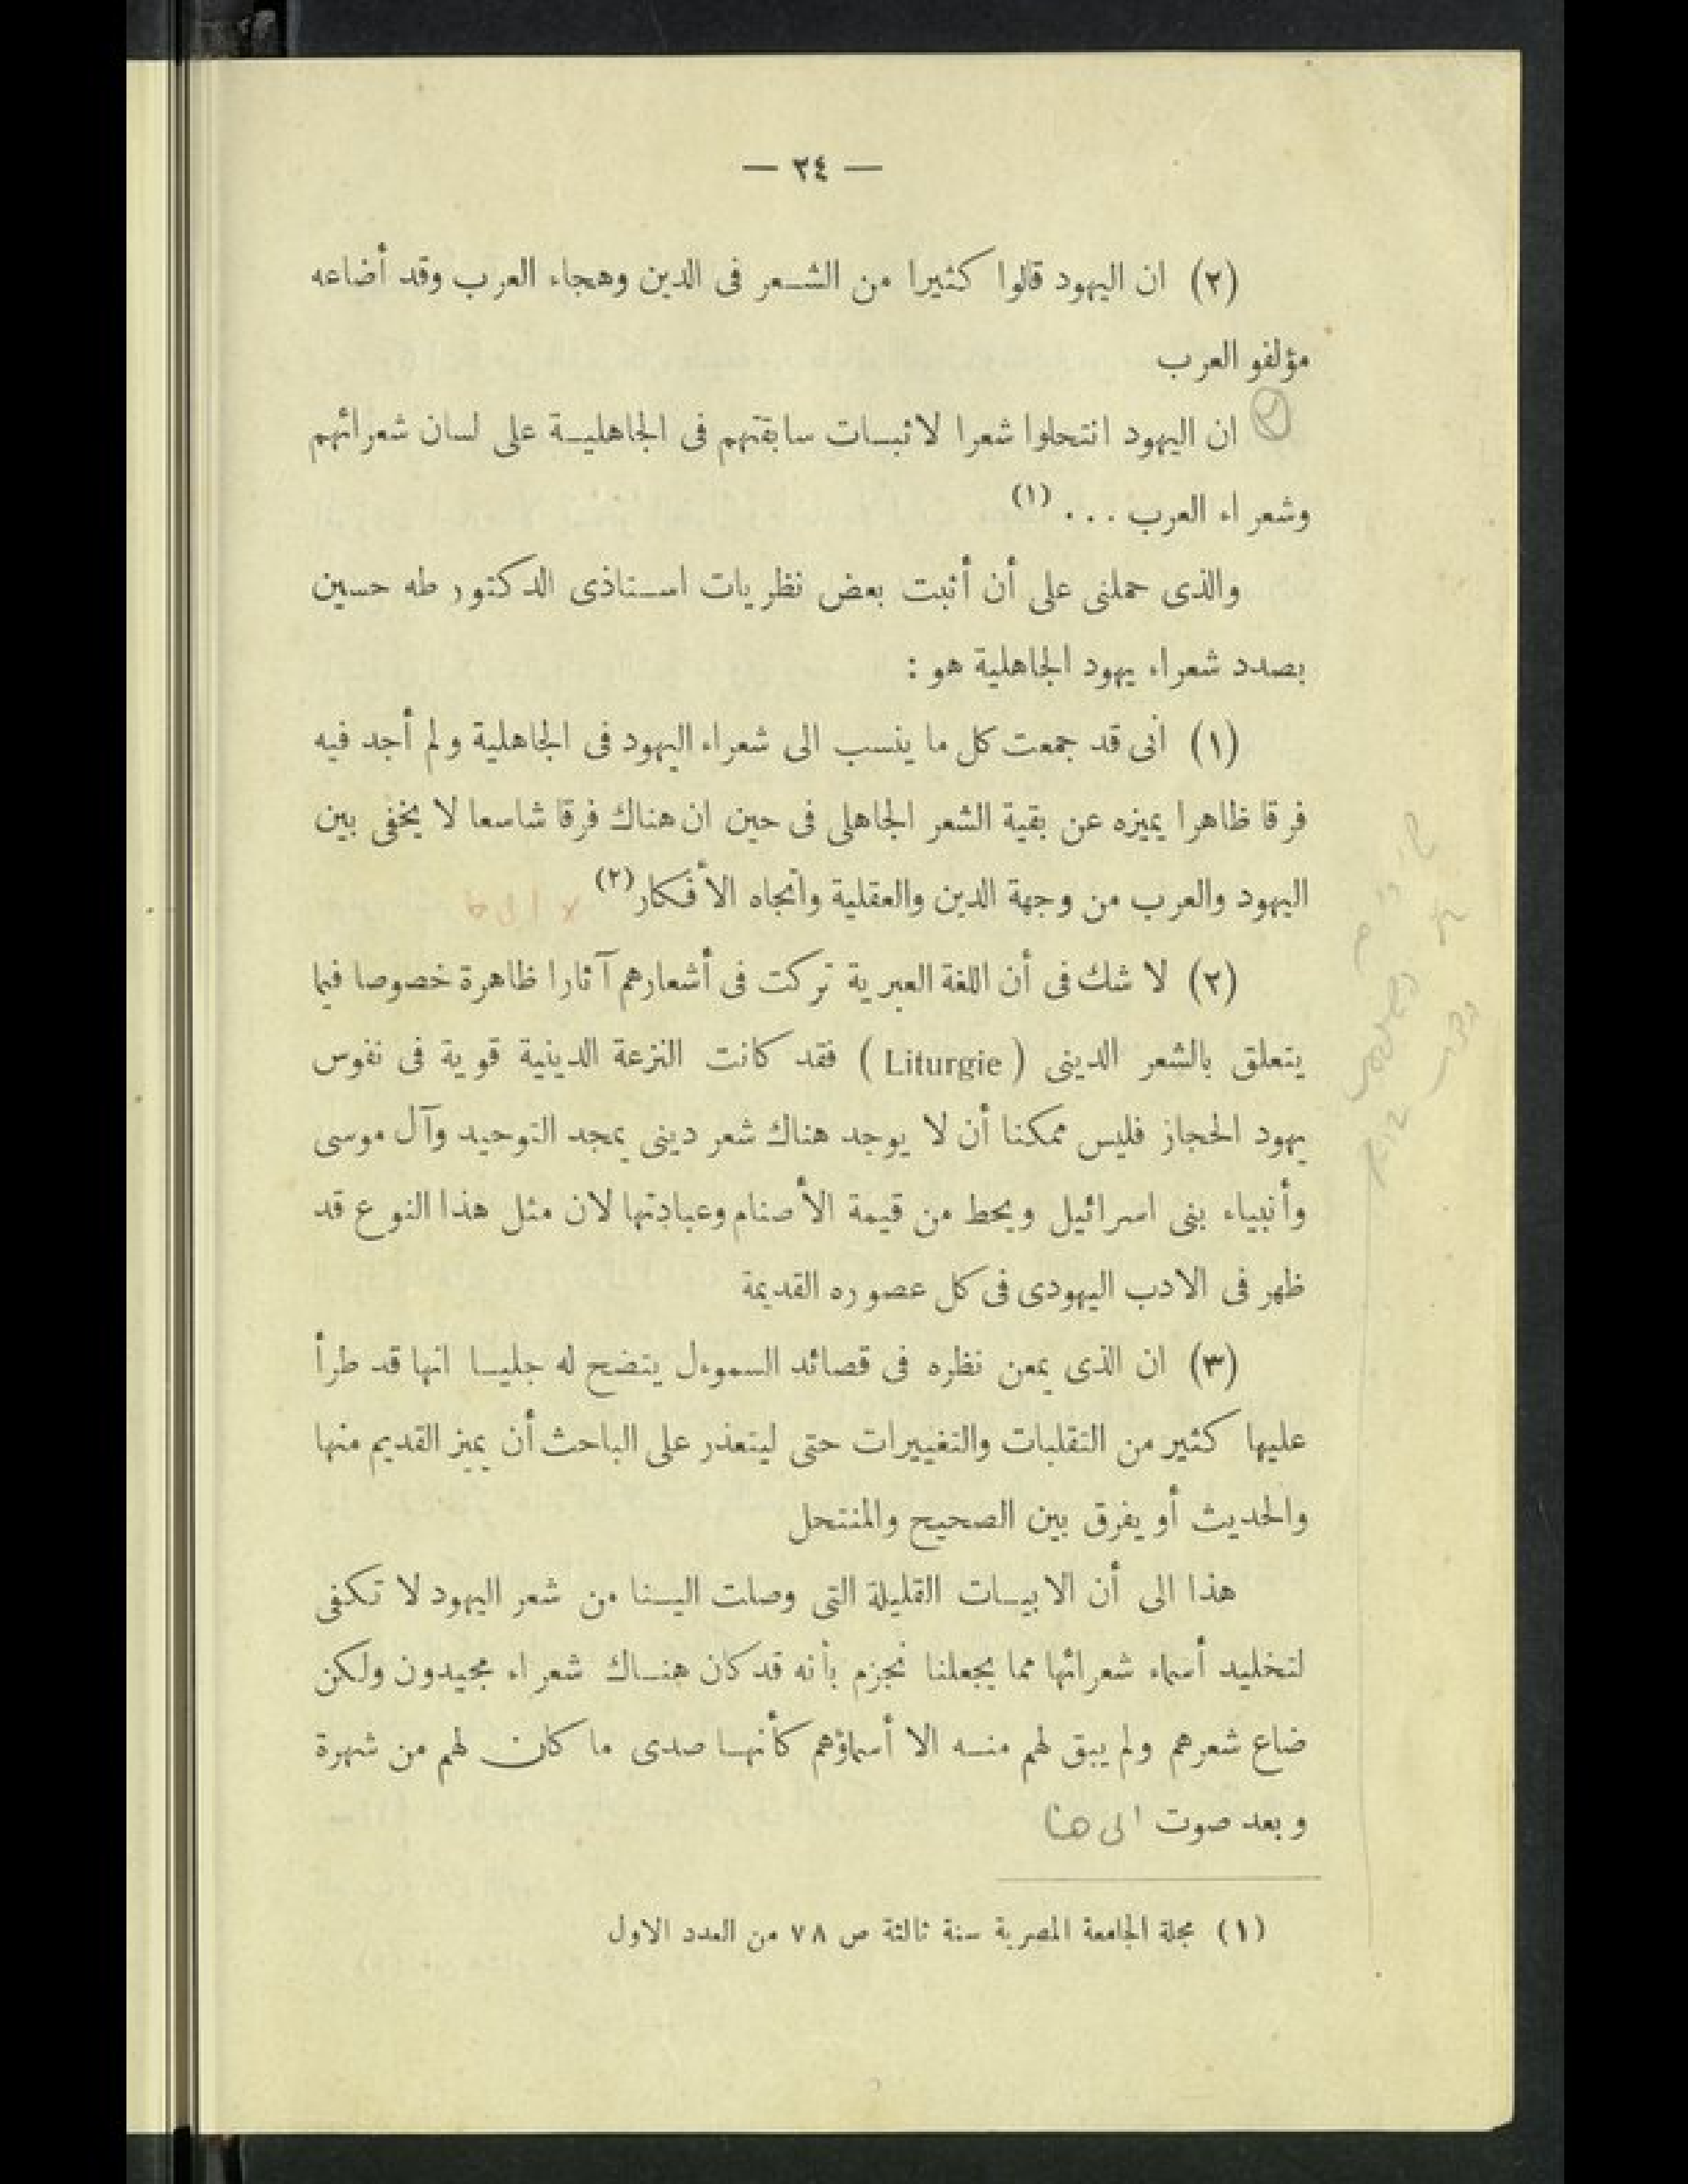 — ٢٤ —
(٢) ان اليهود قالوا كثيرا من الشعر فى الدين وهجاء العرب وقد أضاعه
مؤلفو العرب
ان اليهود انتحلوا شعرا لاثبات سابقتهم فى الجاهلية على لسان شعرائهم
وشعراء العرب . . . (١)
والذى حملنى على أن أثبت بعض نظريات استاذى الدكتور طه حسين
بصدد شعراء يهود الجاهلية هو :
(١) أنى قد جمعت كل ما ينسب الى شعراء اليهود فى الجاهلية ولم أجد فيه
فرقا ظاهرا يميزه عن بقية الشعر الجاهلى فى حين ان هناك فرقا شاسعا لا يخفى بين
اليهود والعرب من وجهة الدين والعقلية واتجاه الأفكار (٢)
(٢) لا شك فى أن اللغة العبرية تركت فى أشعارهم آثارا ظاهرة خصوصا فيما
يتعلق بالشعر الدينى ( Liturgie ) فقد كانت النزعة الدينية قوية فى نفوس
يهود الحجاز فليس ممكنا أن لا يوجد هناك شعر دينى يمجد التوحيد وآل موسى
وأنبياء بنى اسرائيل ويحط من قيمة الأصنام وعبادتها لان مثل هذا النوع قد
ظهر فى الادب اليهودى فى كل عصوره القديمة
(٣) ان الذى يمعن نظره فى قصائد السموءل يتضح له جليا انها قد طرأ
عليها كثير من التقلبات والتغييرات حتى ليتعذر على الباحث أن يميز القديم منها
والحديث أو يفرق بين الصحيح والمنتحل
هذا الى أن الابيات القليلة التى وصلت الينا من شعر اليهود لا تكفى
لتخليد أسماء شعرائها مما يجعلنا نجزم بأنه قد كان هناك شعراء مجيدون ولكن
ضاع شعرهم ولم يبق لهم منه الا أسماؤهم كأنها صدى ما كان لهم من شهرة
وبعد صوت الى هنا
(١) مجلة الجامعة المصرية سنة ثالثة ص ٧٨ من العدد الاول